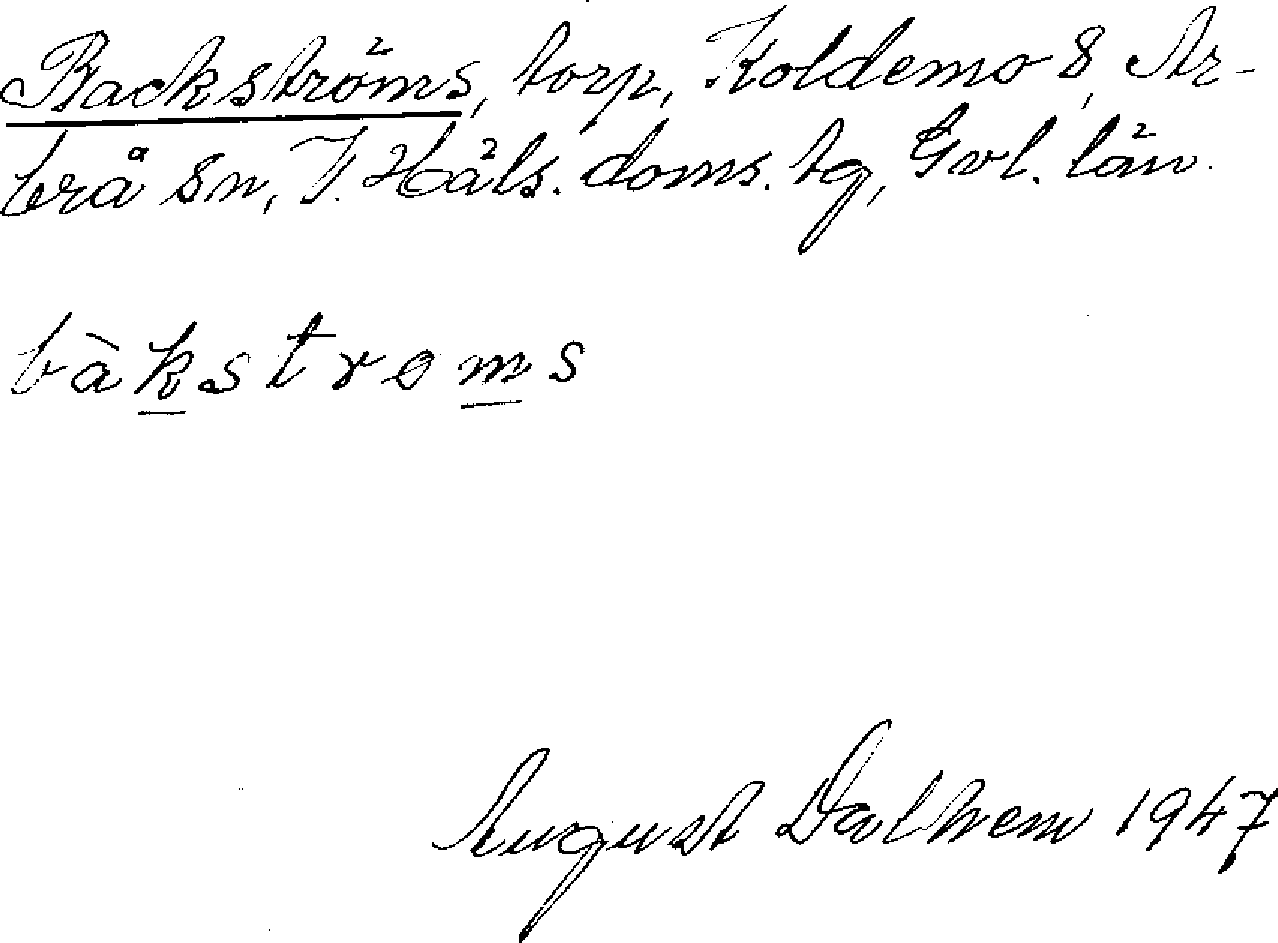 Backströms, torp, Koldemo 8, Ar-
brå sn, V. Häls. doms. tg, Gvl. län.
bàkstroms
August Dalhem 1947